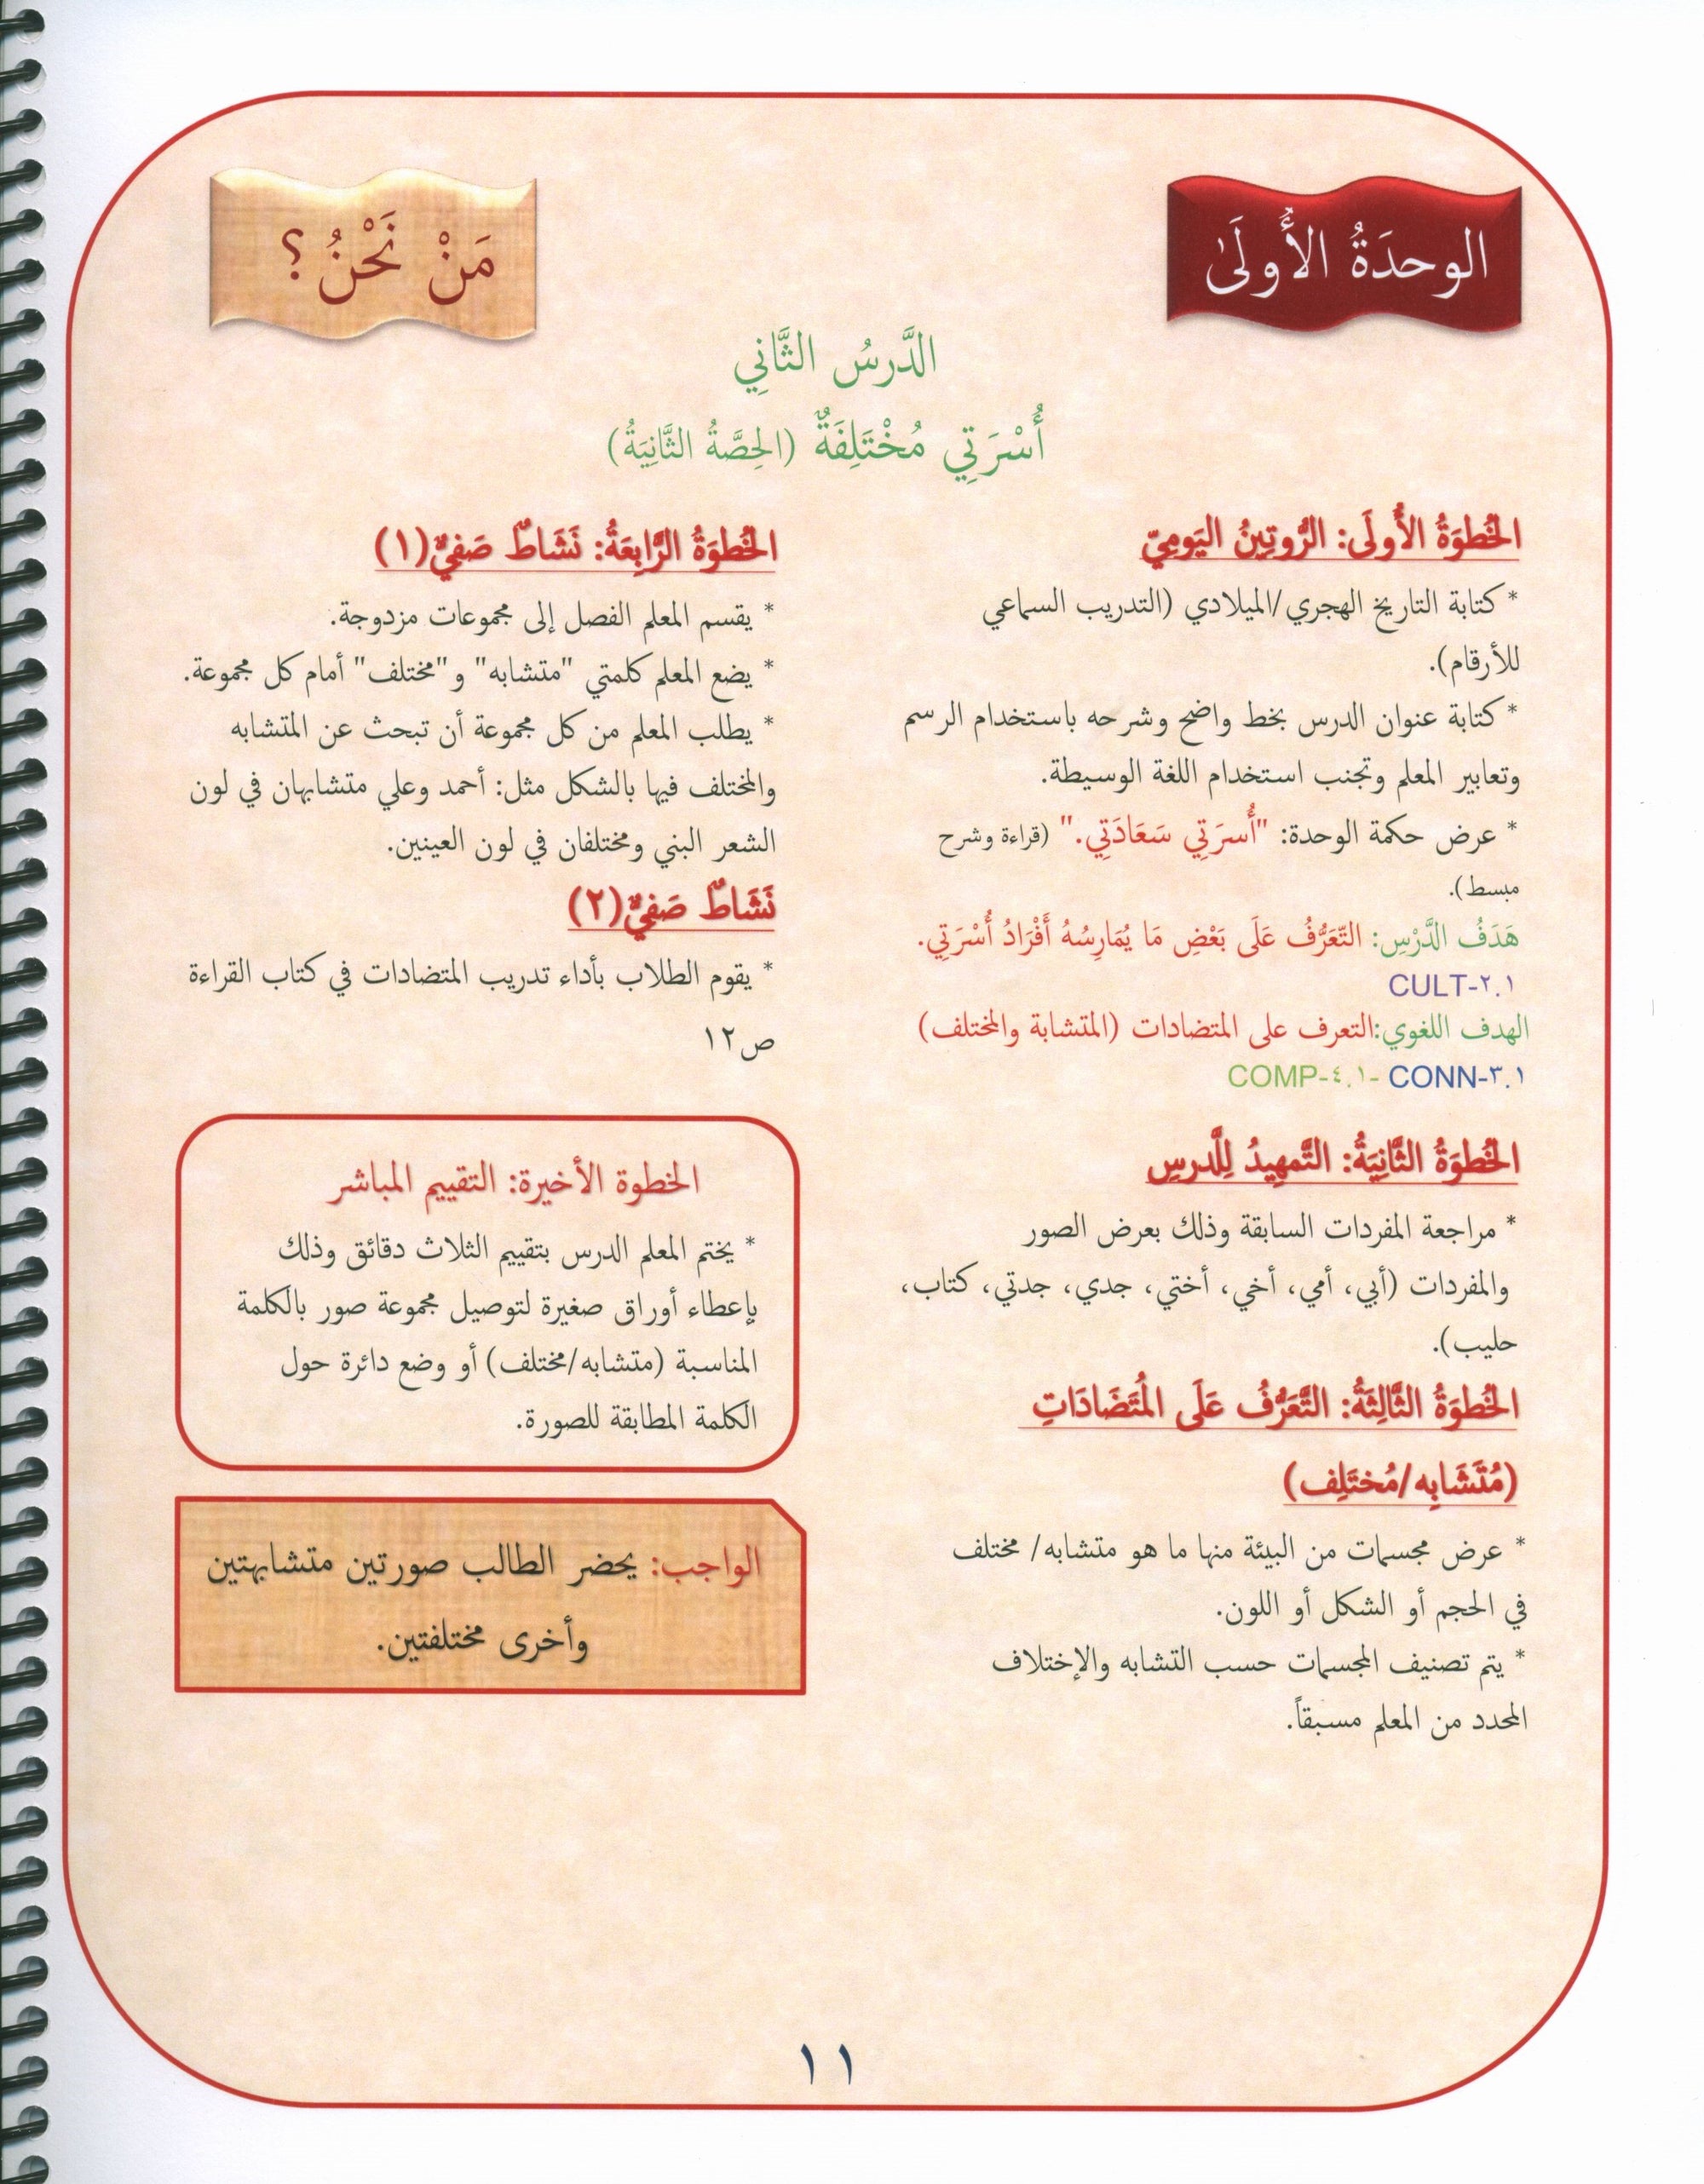 الوحدَةُ الأُولَىٰ
مَنْ نَحْنُ؟
الدَّرسُ الثَّانِي
أُسْرَتِي مُخْتَلِفَةٌ (الحِصَّةُ الثَّانِيَةُ)
الخُطوَةُ الأُولَى: الرُّوتِينُ اليَومِيّ
* كتابة التاريخ الهجري/الميلادي (التدريب السماعي
للأرقام).
* كتابة عنوان الدرس بخط واضح وشرحه باستخدام الرسم
وتعابير المعلم وتجنب استخدام اللغة الوسيطة.
* عرض حكمة الوحدة: "أُسرَتِي سَعَادَتِي." (قراءة وشرح
مبسط).
هَدَفُ الدَّرْسِ: التّعَرُّفُ عَلَى بَعْضِ مَا يُمَارِسُهُ أَفْرَادُ أُسْرَتِي.
CULT-٢.١
الهدف اللغوي:التعرف على المتضادات (المتشابة والمختلف)
COMP-٤.١- CONN-٣.١
الخُطوَةُ الثَّانِيَةُ: التَّمهِيدُ لِلَّدرسِ
* مراجعة المفردات السابقة وذلك بعرض الصور
والمفردات (أبي، أمي، أخي، أختي، جدي، جدتي، كتاب،
حليب).
الخُطوَةُ الثَّالِثَةُ: التَّعَرُّفُ عَلَى المُتَضَادَاتِ
(مُتَشَابِه/مُختَلِف)
* عرض مجسمات من البيئة منها ما هو متشابه/ مختلف
في الحجم أو الشكل أو اللون.
* يتم تصنيف المجسمات حسب التشابه والإختلاف
المحدد من المعلم مسبقاً.
الخُطوَةُ الرَّابِعَةُ: نَشَاطٌ صَفيٌّ(١)
* يقسم المعلم الفصل إلى مجموعات مزدوجة.
* يضع المعلم كلمتي "متشابه" و"مختلف" أمام كل مجموعة.
* يطلب المعلم من كل مجموعة أن تبحث عن المتشابه
والمختلف فيها بالشكل مثل: أحمد وعلي متشابهان في لون
الشعر البني ومختلفان في لون العينين.
نَشَاطٌ صَفيٌّ(٢)
* يقوم الطلاب بأداء تدريب المتضادات في كتاب القراءة
ص١٢
الخطوة الأخيرة: التقييم المباشر
* يختم المعلم الدرس بتقييم الثلاث دقائق وذلك
بإعطاء أوراق صغيرة لتوصيل مجموعة صور بالكلمة
المناسبة (متشابه/مختلف) أو وضع دائرة حول
الكلمة المطابقة للصورة.
الواجب: يحضر الطالب صورتين متشابهتين
وأخرى مختلفتين.
١١